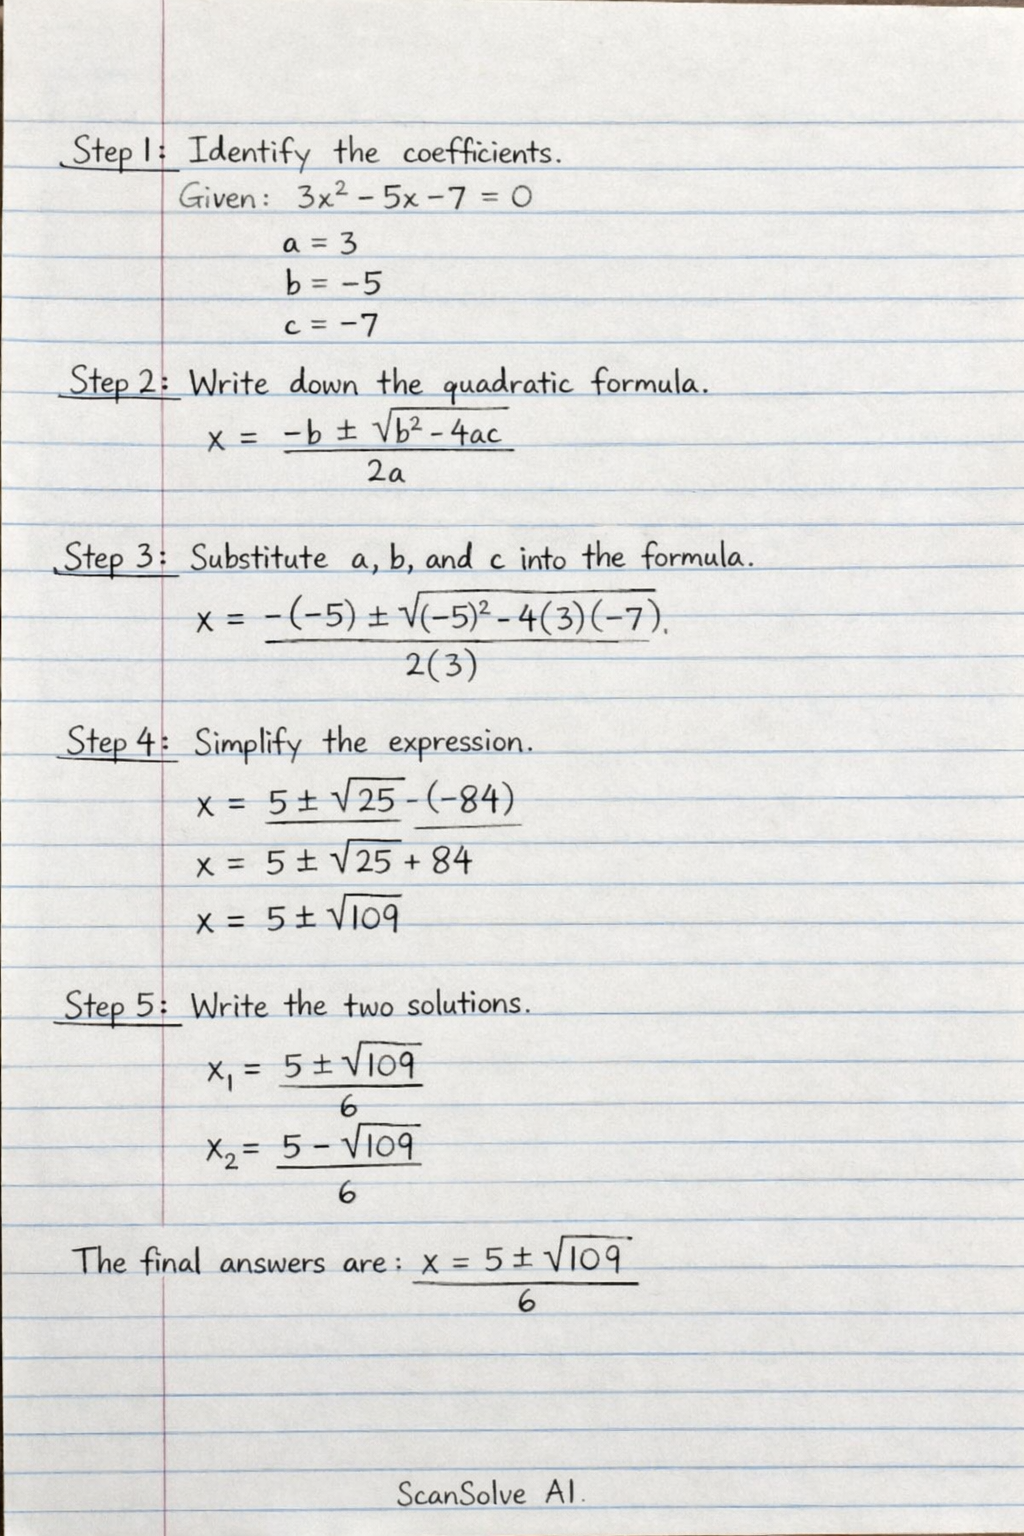 Step 1: Identify the coefficients.
Given: 3x² - 5x - 7 = 0
a = 3
b = -5
c = -7
Step 2: Write down the quadratic formula.
x = -b ± √b² - 4ac
2a
Step 3: Substitute a, b, and c into the formula.
x = -(-5) ± √(-5)² - 4(3)(-7).
2(3)
Step 4: Simplify the expression.
x = 5 ± √25 - (-84)
x = 5 ± √25 + 84
x = 5 ± √109
Step 5: Write the two solutions.
x₁ = 5 ± √109
6
x₂ = 5 - √109
6
The final answers are: x = 5 ± √109
6
ScanSolve AI.